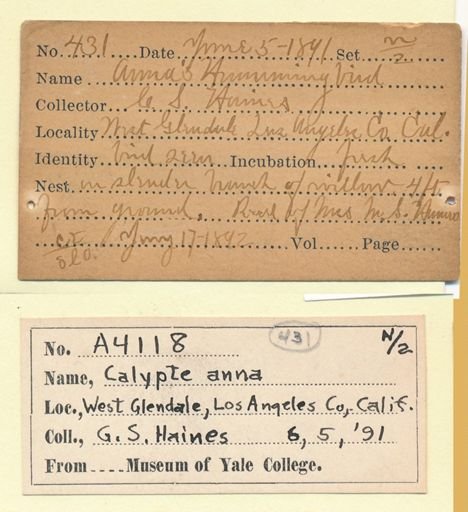 No. 431 Date June 5-1891 Set n/2
Name Anna's Hummingbird
Collector G. S. Haines
Locality West Glendale Los Angeles Co. Cal.
Identity bird seen Incubation fresh
Nest in slender branch of willow 4 ft
from ground. Recd of Mrs M. S.
1892 Vol. Page
No. A4118 431 N/2
Name, Calypte anna
Loc., West Glendale, Los Angeles Co., Calif.
Coll., G. S. Haines 6, 5, '91
From Museum of Yale College.